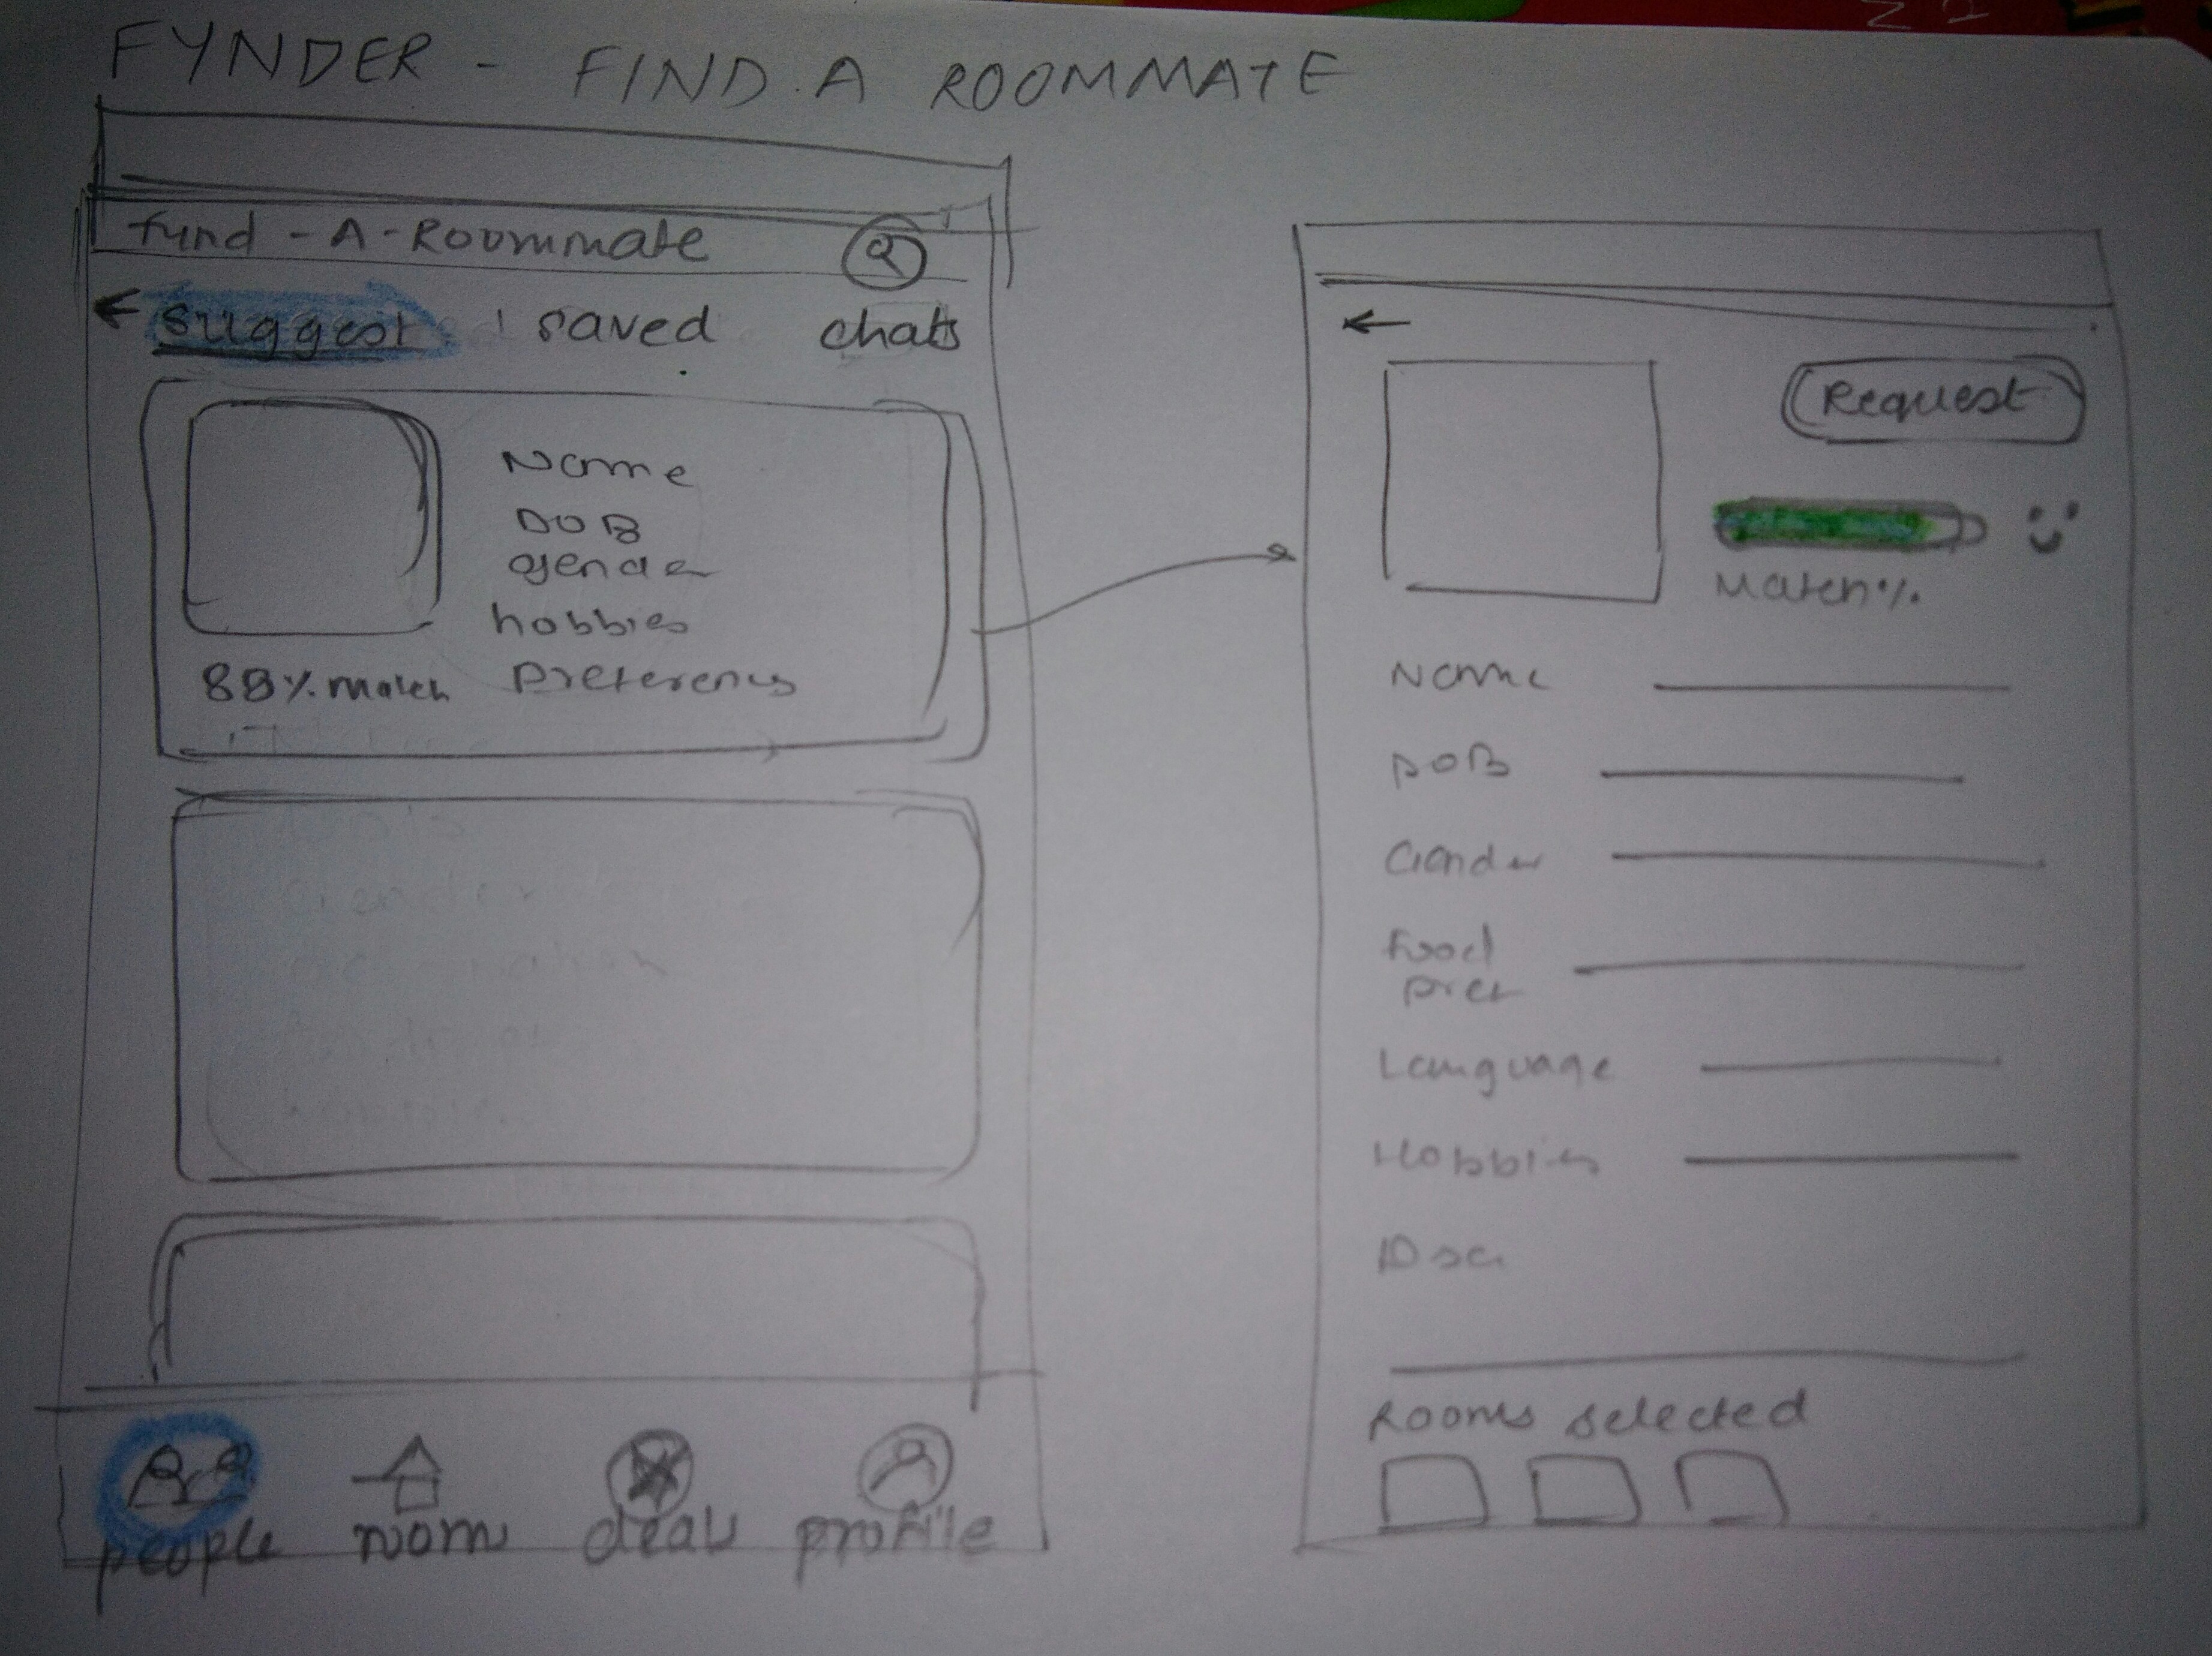 FYNDER - FIND.A ROOMMATE
Fynd - A - Roommate
suggest saved chats
Name
DOB
gender
hobbies
88% match preferences
people room deals profile
Request
Match%
Name
DOB
Gender
Food
Pref
Language
Hobbies
Desc
Rooms selected